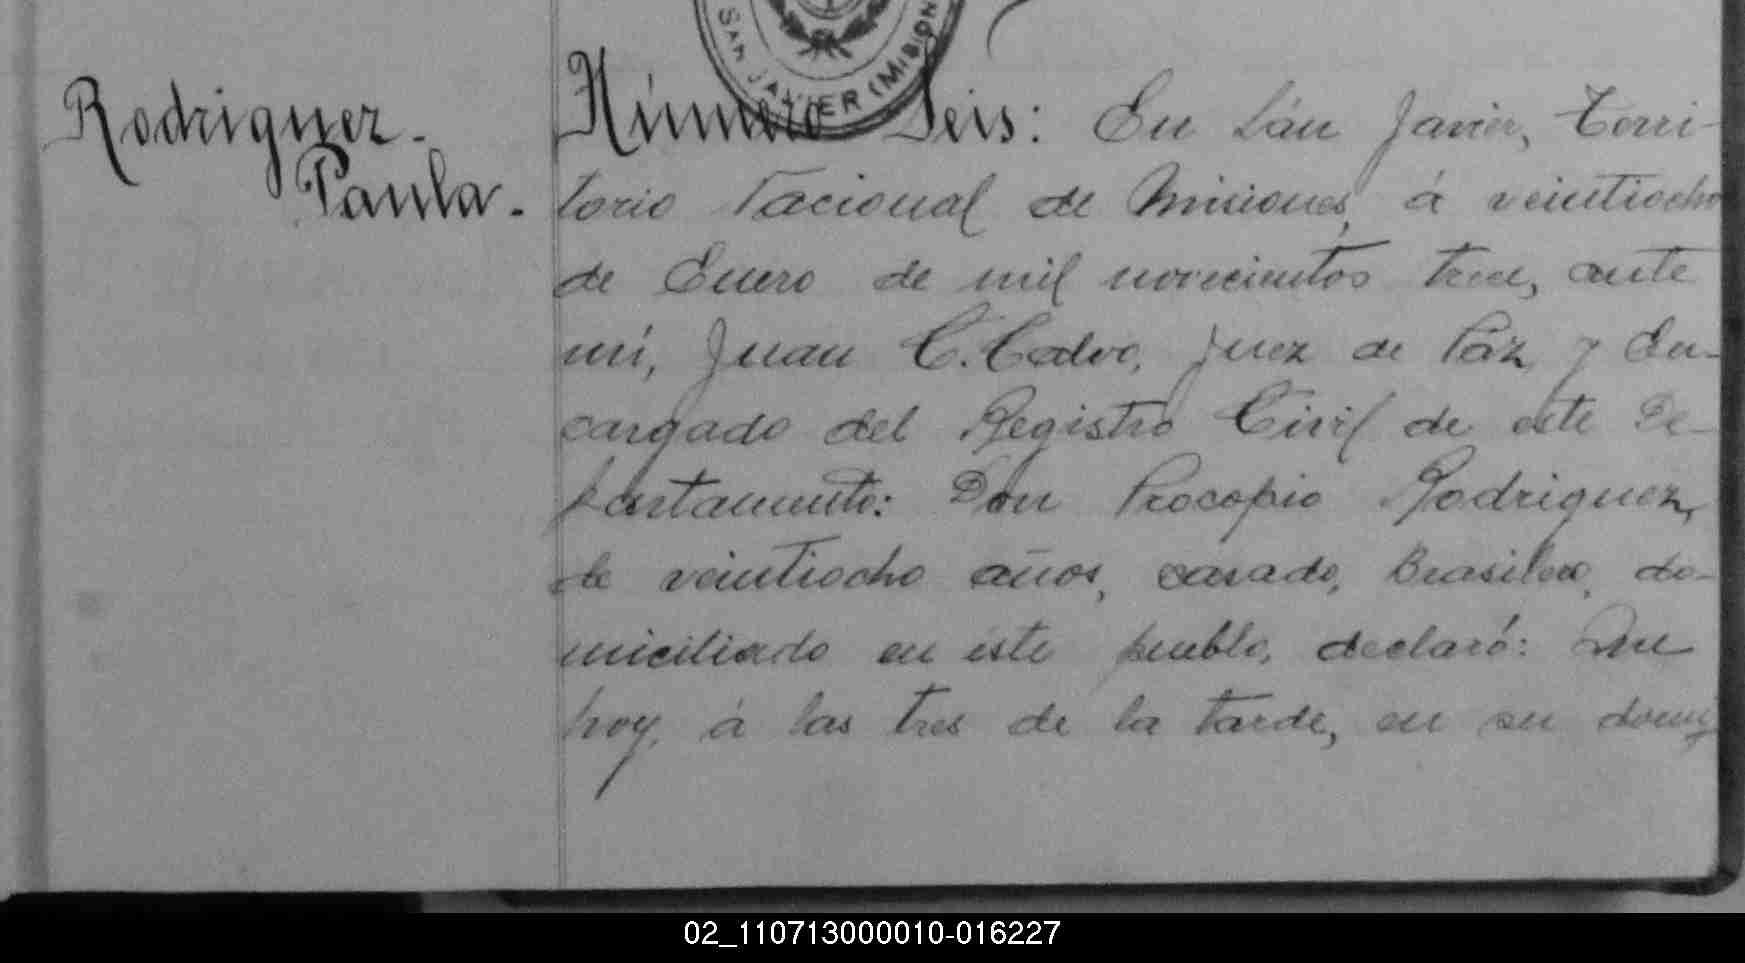 SAN JAVIER (MISION
Rodriguez.
Paula.
Número Seis: En Sán Javier, Terri-
torio Nacional de Misiones, á veintiocho
de Enero de mil novecientos trece, ante
mí, Juan C. Calvo, Juez de Páz y En-
cargado del Registro Civil de este De-
partamento: Don Procopio Rodriguez,
de veintiocho años, casado, Brasilero, do-
miciliado en éste pueblo, declaró: Que
hoy, á las tres de la tarde, en su domi-
02_110713000010-016227